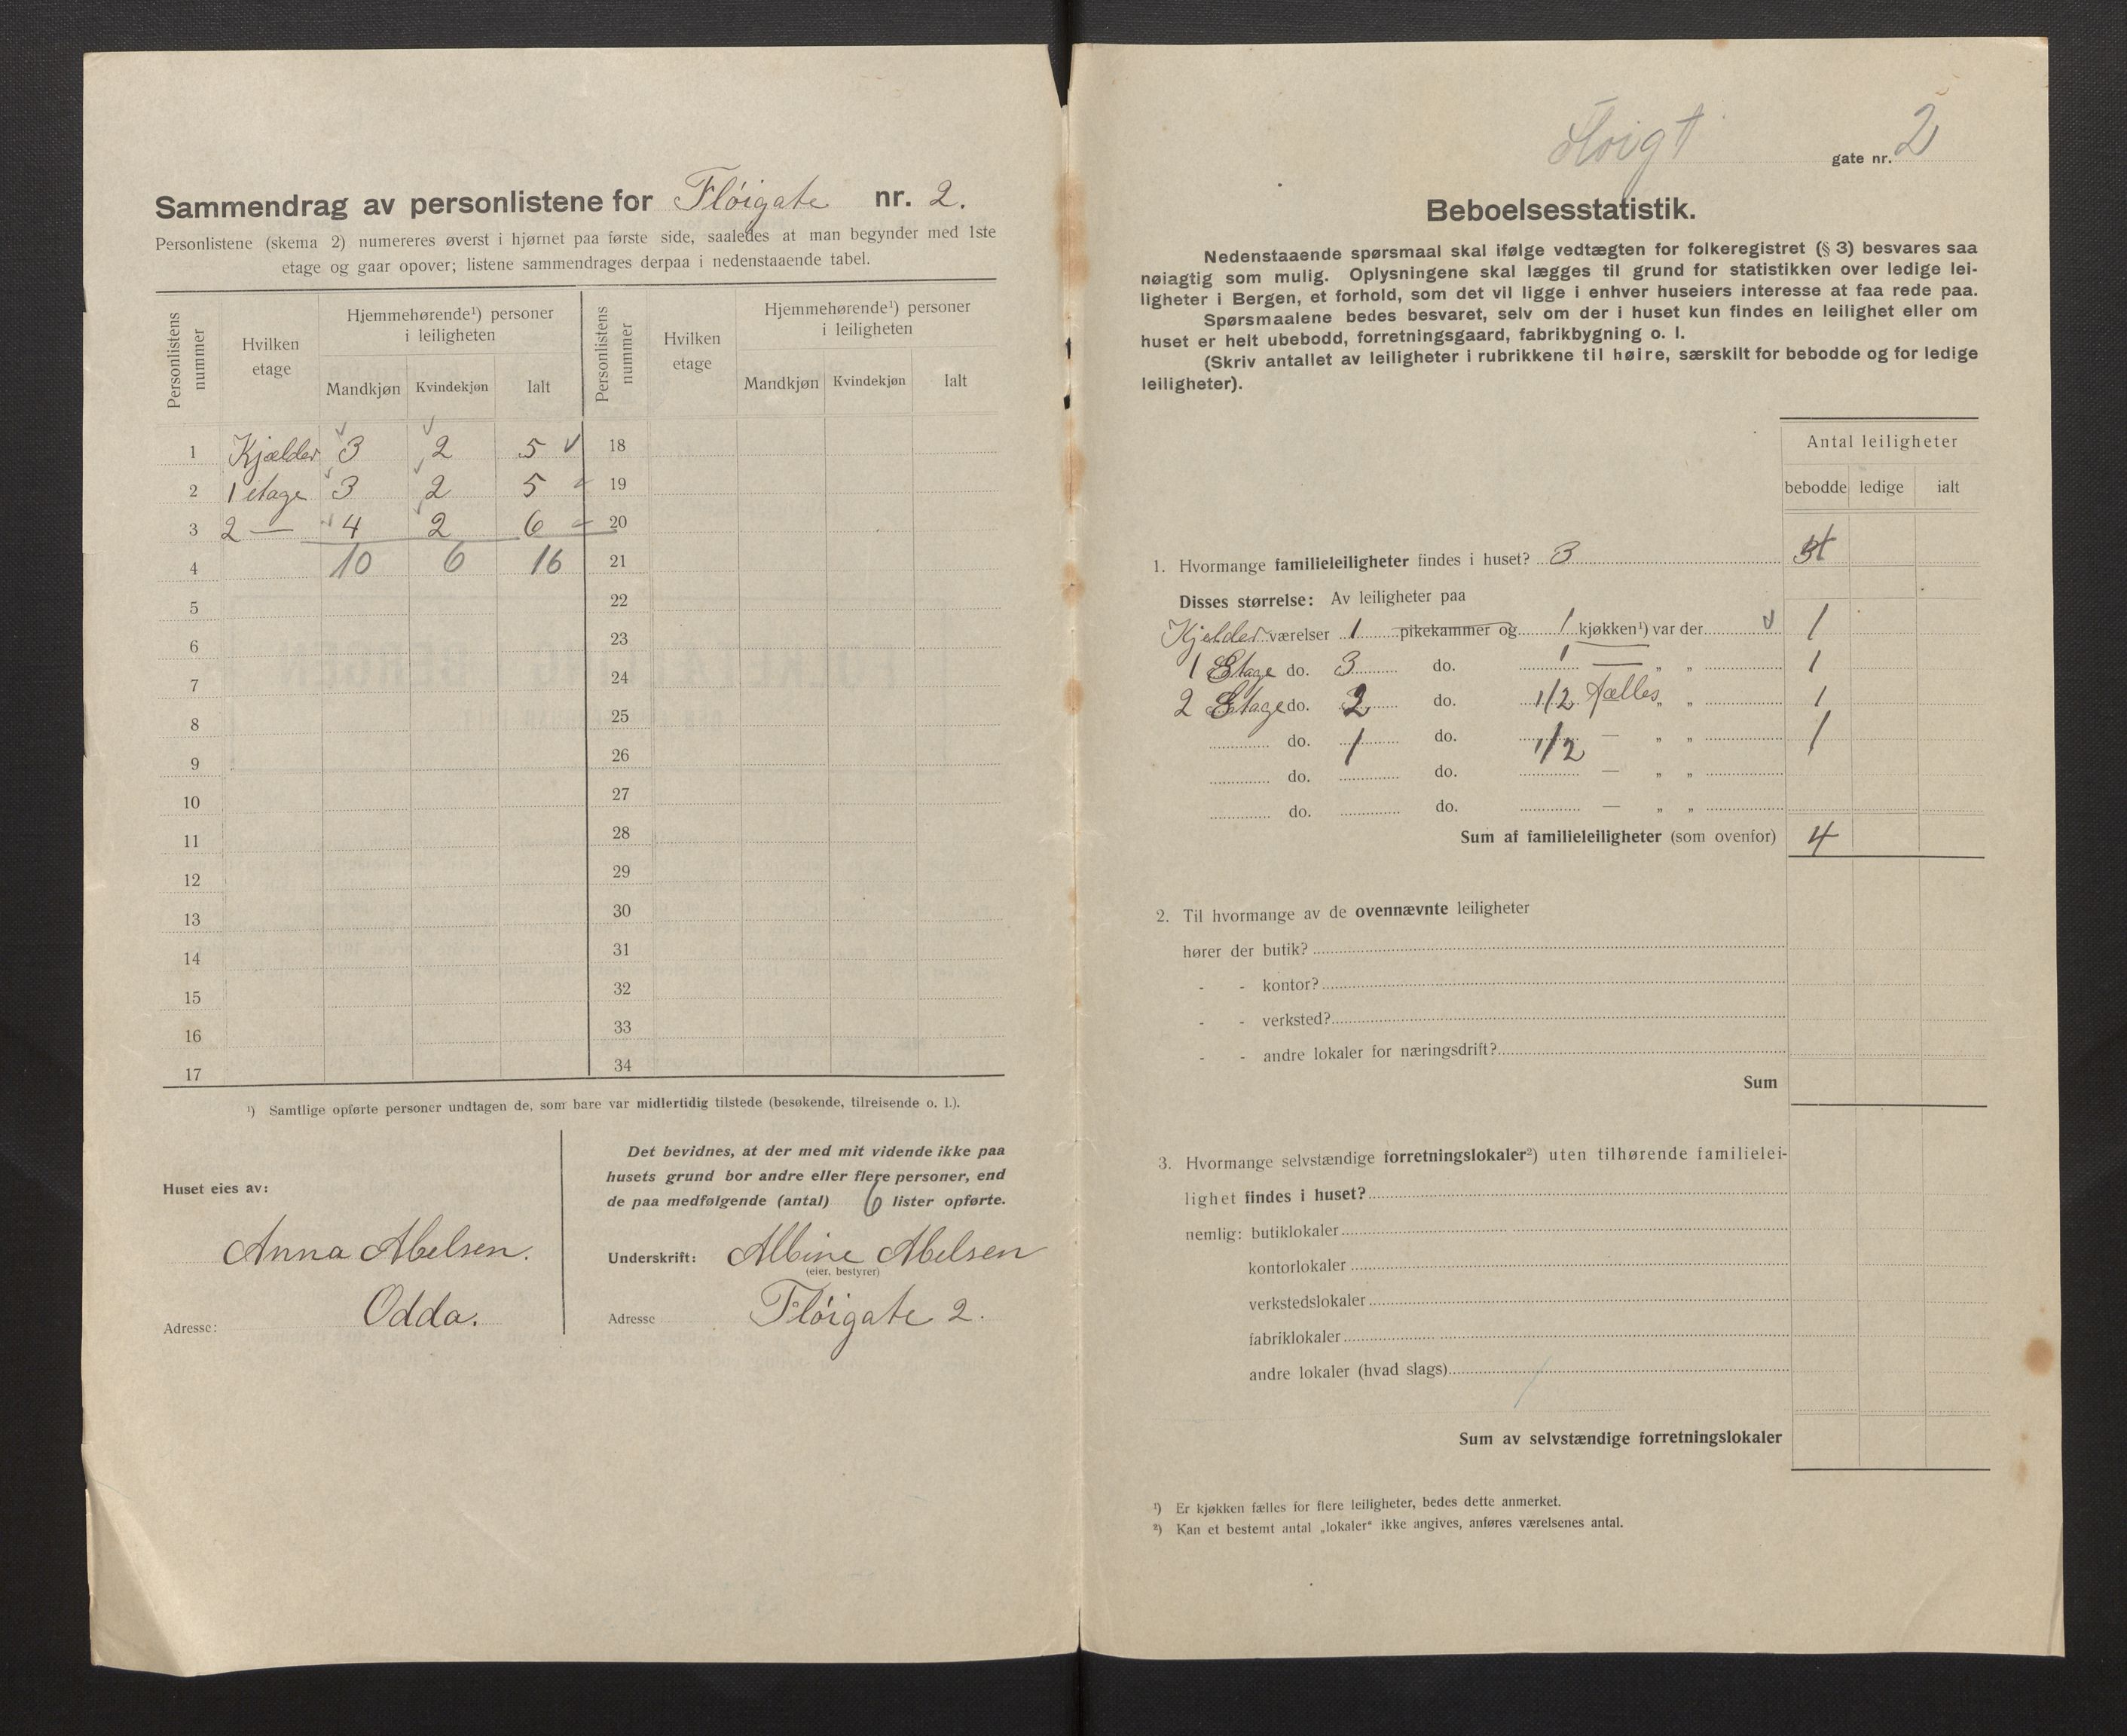 Sammendrag av personlistene for Fløigate nr. 2.
Personlistene (skema 2) numereres øverst i hjørnet paa første side, saaledes at man begynder med 1ste
etage og gaar opover; listene sammendrages derpaa i nedenstaaende tabel.
Personlistens nummer
Hvilken etage
Hjemmehørende¹) personer i leiligheten
Mandkjøn Kvindekjøn Ialt
Personlistens nummer
Hvilken etage
Hjemmehørende¹) personer i leiligheten
Mandkjøn Kvindekjøn Ialt
1 Kjælder 3 2 5 18
2 1 etage 3 2 5 19
3 2 — 4 2 6 20
4 10 6 16 21
5 22
6 23
7 24
8 25
9 26
10 27
11 28
12 29
13 30
14 31
15 32
16 33
17 34
¹) Samtlige opførte personer undtagen de, som bare var midlertidig tilstede (besøkende, tilreisende o. l.).
Huset eies av:
Anna Abelsen.
Adresse: Odda.
Det bevidnes, at der med mit vidende ikke paa
husets grund bor andre eller flere personer, end
de paa medfølgende (antal) 6 lister opførte.
Underskrift: Albine Abelsen
(eier, bestyrer)
Adresse Fløigate 2.
Fløigt gate nr. 2
Beboelsesstatistik.
Nedenstaaende spørsmaal skal ifølge vedtægten for folkeregistret (§ 3) besvares saa
nøiagtig som mulig. Oplysningene skal lægges til grund for statistikken over ledige lei-
ligheter i Bergen, et forhold, som det vil ligge i enhver huseiers interesse at faa rede paa.
Spørsmaalene bedes besvaret, selv om der i huset kun findes en leilighet eller om
huset er helt ubebodd, forretningsgaard, fabrikbygning o. l.
(Skriv antallet av leiligheter i rubrikkene til høire, særskilt for bebodde og for ledige
leiligheter).
Antal leiligheter
bebodde ledige ialt
1. Hvormange familieleiligheter findes i huset? 3 4
Disses størrelse: Av leiligheter paa
Kjelder værelser 1 pikekammer og 1 kjøkken¹) var der 1
1 Etage do. 3 do. 1 — „ „ 1
2 Etage do. 2 do. 1/2 fælles „ „ 1
do. 1 do. 1/2 — „ „ 1
do. do. — „ „
do. do. — „ „
Sum af familieleiligheter (som ovenfor) 4
2. Til hvormange av de ovennævnte leiligheter
hører der butik?
- - kontor?
- - verksted?
- - andre lokaler for næringsdrift?
Sum
3. Hvormange selvstændige forretningslokaler²) uten tilhørende familielei-
lighet findes i huset?
nemlig: butiklokaler
kontorlokaler
verkstedslokaler
fabriklokaler
andre lokaler (hvad slags)
Sum av selvstændige forretningslokaler
¹) Er kjøkken fælles for flere leiligheter, bedes dette anmerket.
²) Kan et bestemt antal „lokaler“ ikke angives, anføres værelsenes antal.